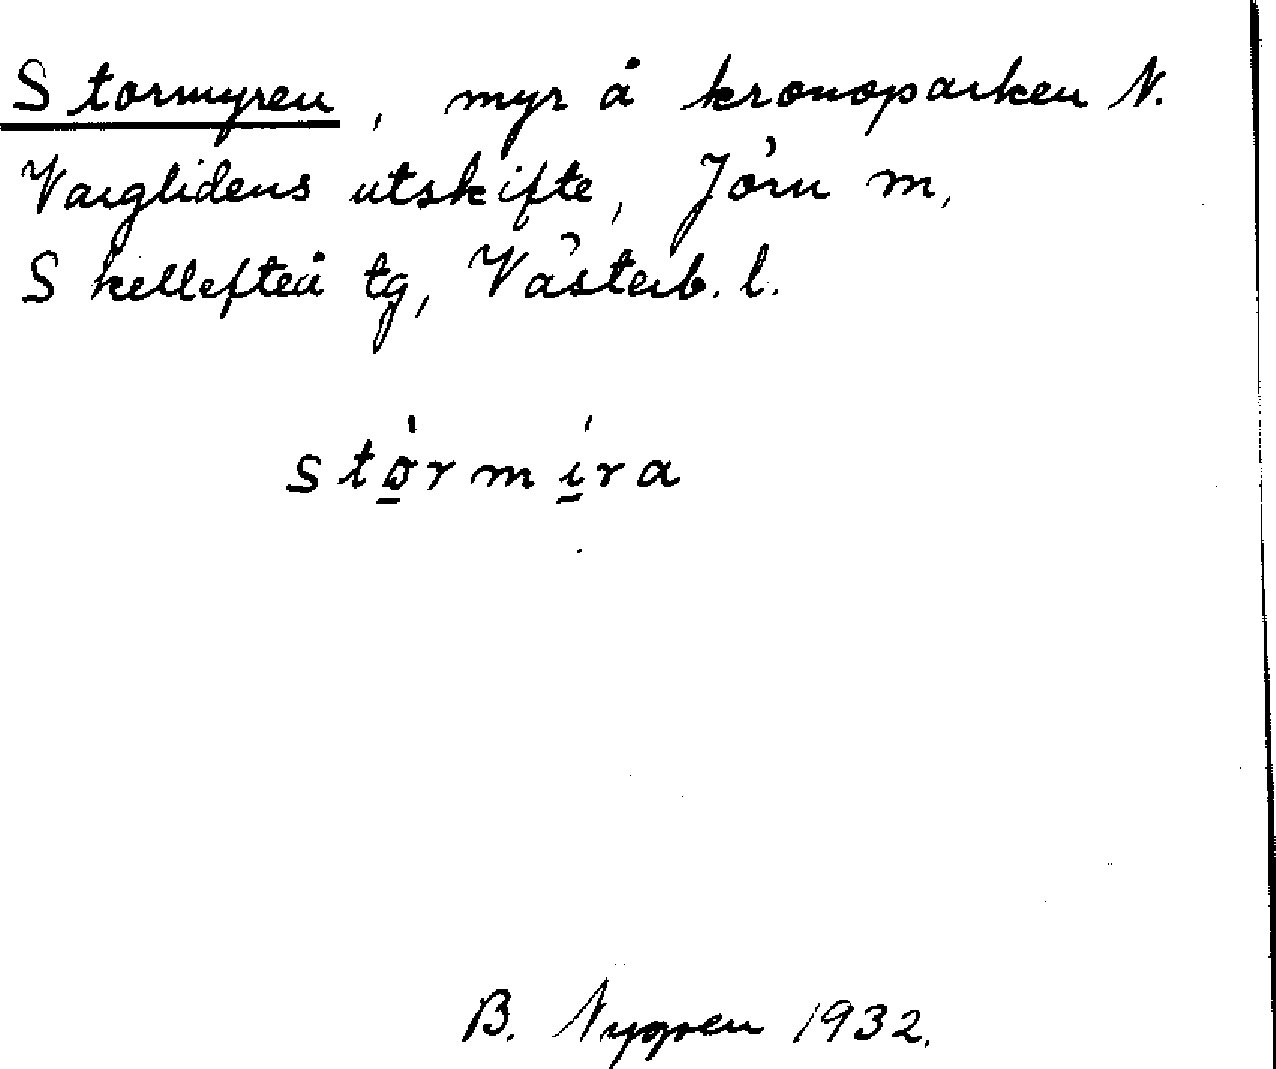 Stormyren, myr å kronoparken N.
Varglidens utskifte, Jörn m,
Skellefteå tg, Västerb. l.
stòrmíra
B. Nygren 1932.